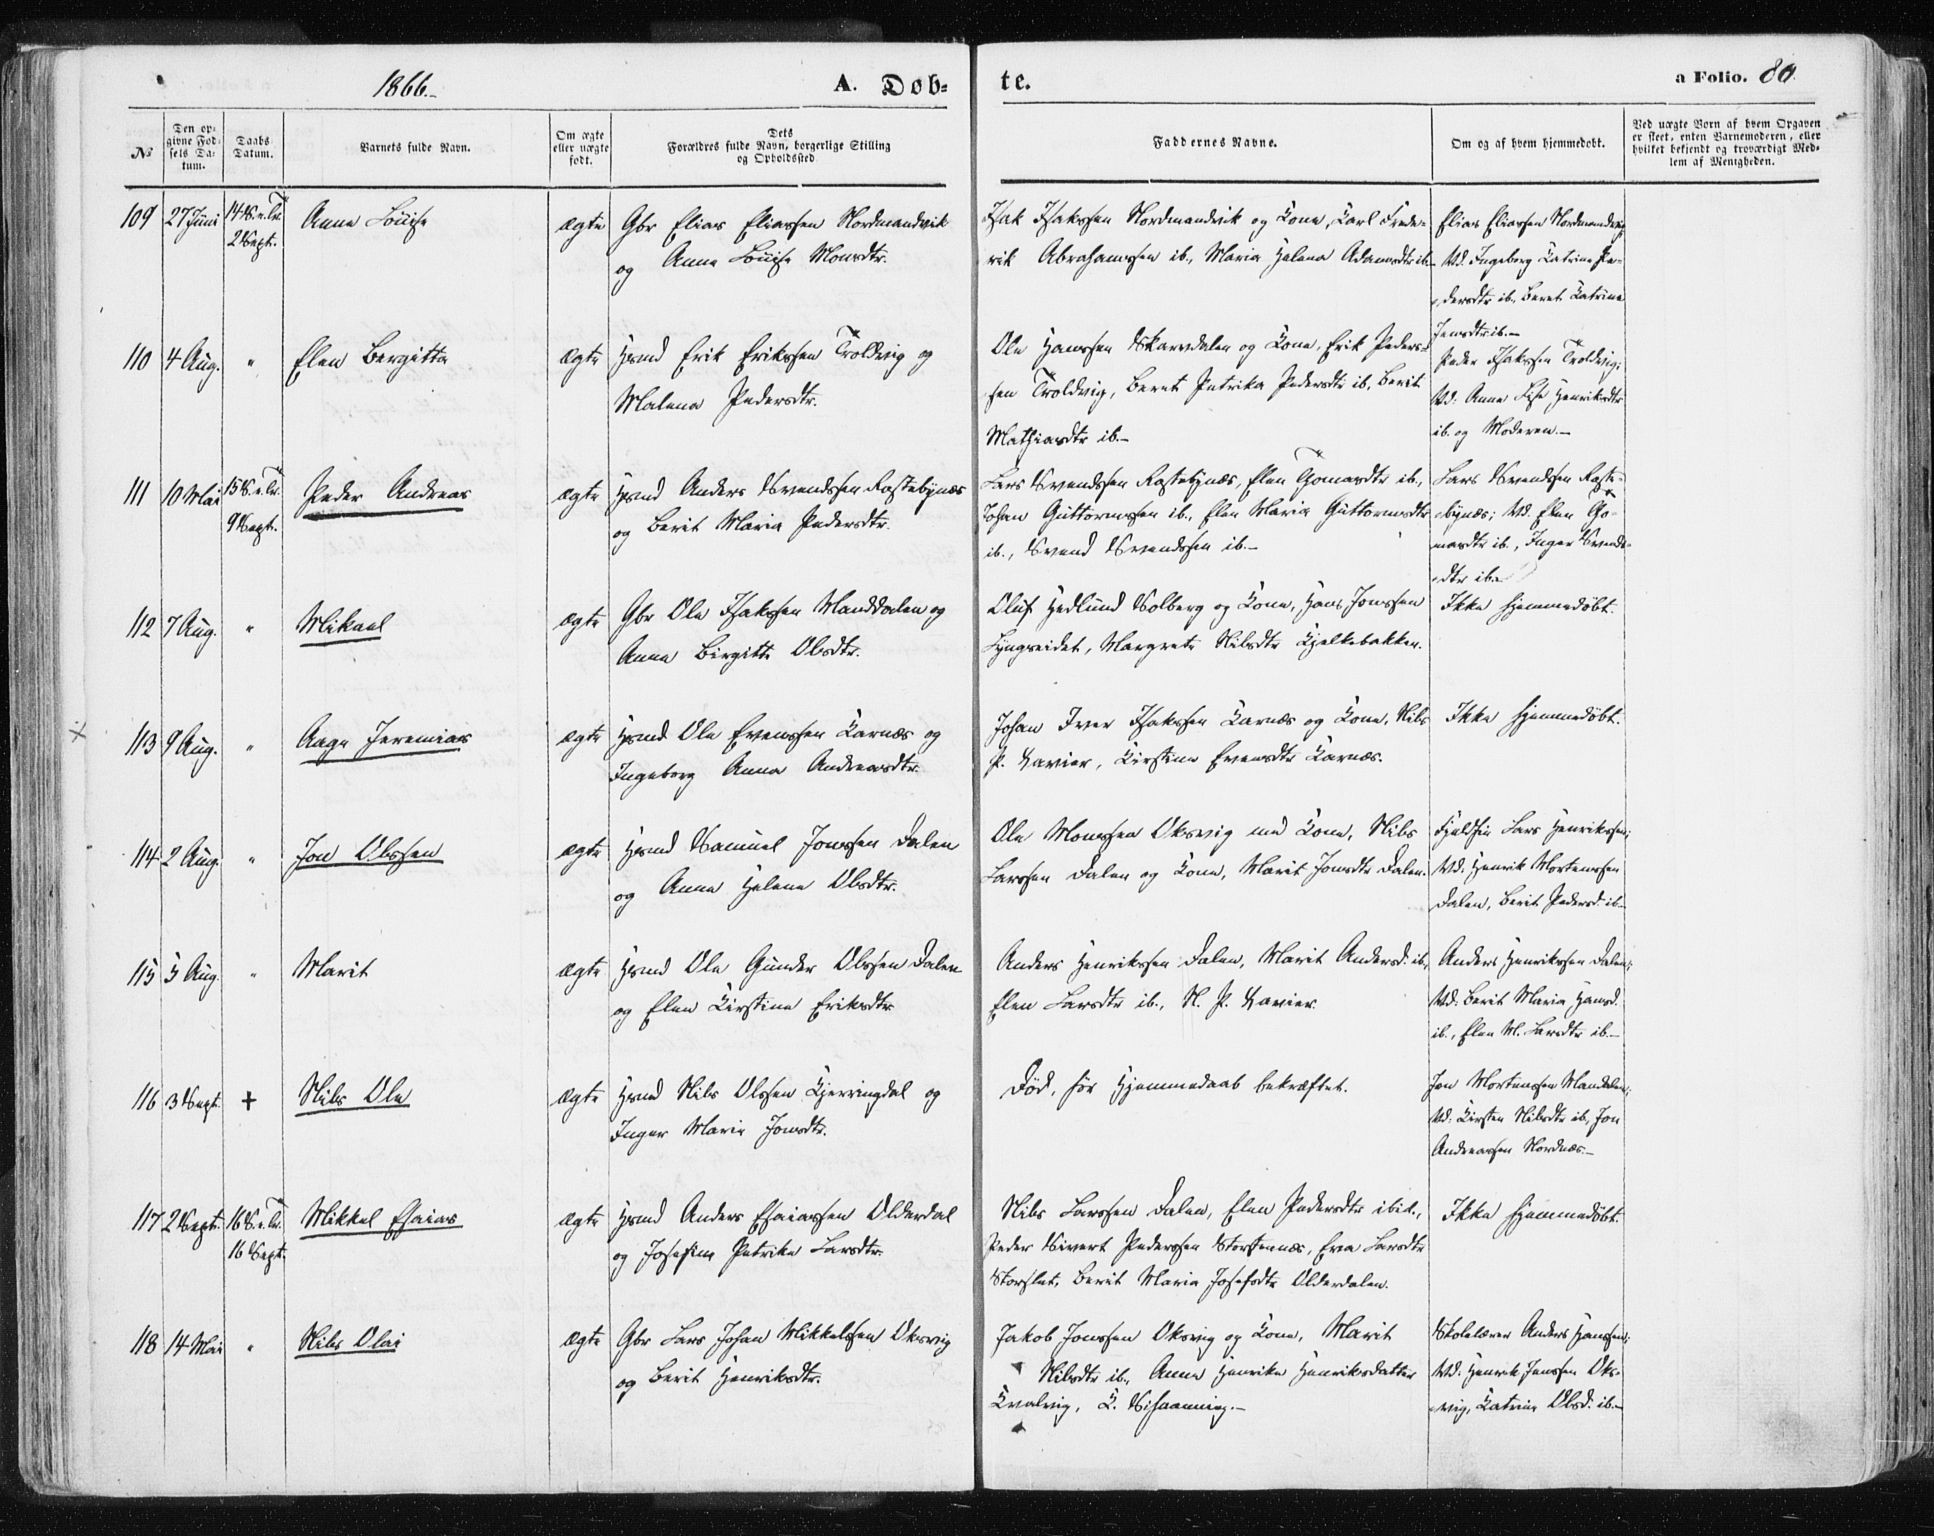 1866.-
A. Døb-
te.
a Folio. 80.
№
Den op-
givne Fød-
sels Da-
tum.
Daabs
Datum.
Barnets fulde Navn.
Om ægte
eller uægte
født.
Dets
Forældres fulde Navn, borgerlige Stilling
og Opholdssted
Faddernes Navne.
Om og af hvem hjemmedøbt.
Ved uægte Børn af hvem Opgaven
er skeet, enten Barnemoderen, eller
hvilket bekjendt og troværdigt Med-
lem af Menigheden.
109 27 Juni 14 S. e. Tr.
2 Sept.
Anne Louise
ægte
Gbr Elias Eliassen Nordmandvik
og Anne Louise Monsdtr.
Isak Isakssen Nordmandvik og Kone, Carl Frede-
rik Abrahamssen ib., Maria Helena Adamsdtr ib.-
Elias Eliassen Nordmandvig
Vd. Ingeborg Katrine Pe-
dersdtr ib., Beret Katrine
Jensdtr ib.-
110 4 Aug. "
Elen Bergitta
ægte
Hsmd Erik Erikssen Troldvig og
Malena Pedersdtr.
Ole Hanssen Skarvdalen og Kone, Erik Peders-
sen Troldvig, Beret Petrika Pedersdtr ib, Berit
Mathiasdtr ib.-
Peder Isakssen Troldvig;
Vd. Anne Lise Henriksdtr
ib. og Moderen.-
111 10 Mai 15 S. e. Tr.
9 Sept.
Peder Andreas
ægte
Hsmd Anders Svendssen Rastebynæs
og Berit Maria Pedersdtr.
Lars Svendssen Rastebynæs, Elen Thomasdtr ib.,
Johan Guttormssen ib., Elen Maria Guttormsdtr
ib., Svend Svendssen ib.-
Lars Svendssen Raste-
bynæs; Vd. Elen Tho-
masdtr ib., Inger Svends-
dtr ib.-
112 7 Aug. "
Mikael
ægte
Gbr Ole Isakssen Manddalen og
Anne Birgitte Olsdtr.
Oluf Hedlund Solberg og Kone, Hans Jonssen
Lyngseidet, Margrete Nilsdtr Kjelkebakken.
Ikke hjemmedøbt.
113 9 Aug. "
Aage Jeremias
ægte
Hsmd Ole Evenssen Karnæs og
Ingeborg Anna Andreasdtr.
Johan Iver Isakssen Karnæs og Kone, Nils
P. Xavier, Kirstine Evensdtr Karnæs.
Ikke hjemmedøbt.
114 2 Aug. "
Jon Olssen
ægte
Hsmd Samuel Jonssen Dalen
og Anne Helene Olsdtr.
Ole Monssen Oksvig med Kone, Nils
Larssen Dalen og Kone, Marit Jonsdtr Dalen.
Fjeldfin Lars Henrikssen;
Vd. Henrik Mortenssen
Dalen, Berit Pedersd. ib-
115 5 Aug. "
Marit
ægte
Hsmd Ole Gunder Olssen Dalen
og Elen Kirstine Eriksdtr
Anders Henrikssen Dalen, Marit Andersd. ib.,
Elen Larsdtr ib., N. P. Xavier.
Anders Henrikssen Dalen;
Vd: Berit Maria Hansd.
ib., Elen M. Larsdtr ib.-
116 3 Sept. +
Nils Ole
ægte
Hsmd Nils Olssen Kjerringdal og
Inger Marie Jonsdtr.
Død, før Hjemmedaab bekræftet.
Jon Mortenssen Mandalen;
Vd: Kirsten Nilsdtr ib, Jon
Andreassen Nordnæs.-
117 2 Sept. 16 S. e. Tr.
16 Sept.
Mikkel Esaias
ægte
Hsmd Anders Esaiassen Olderdal
og Josefine Petrike Larsdtr.
Nils Larssen Dalen, Elen Pedersdtr ibid.,
Peder Sivert Pederssen Storstennæs, Eva Larsdtr
Storslet, Berit Maria Josefsdtr Olderdalen.
Ikke hjemmedøbt.
118 14 Mai "
Nils Olai
ægte
Gbr Lars Johan Mikkelssen Oksvig
og Berit Henriksdtr.
Jakob Jonssen Oksvig og Kone, Marit
Nilsdtr ib., Anne Henrika Henriksdatter
Kvalvig, K. Schaanning.-
Skolelærer Anders Hanssen;
Vd: Henrik Jenssen Oks-
vig, Katrine Olsd. ib.-